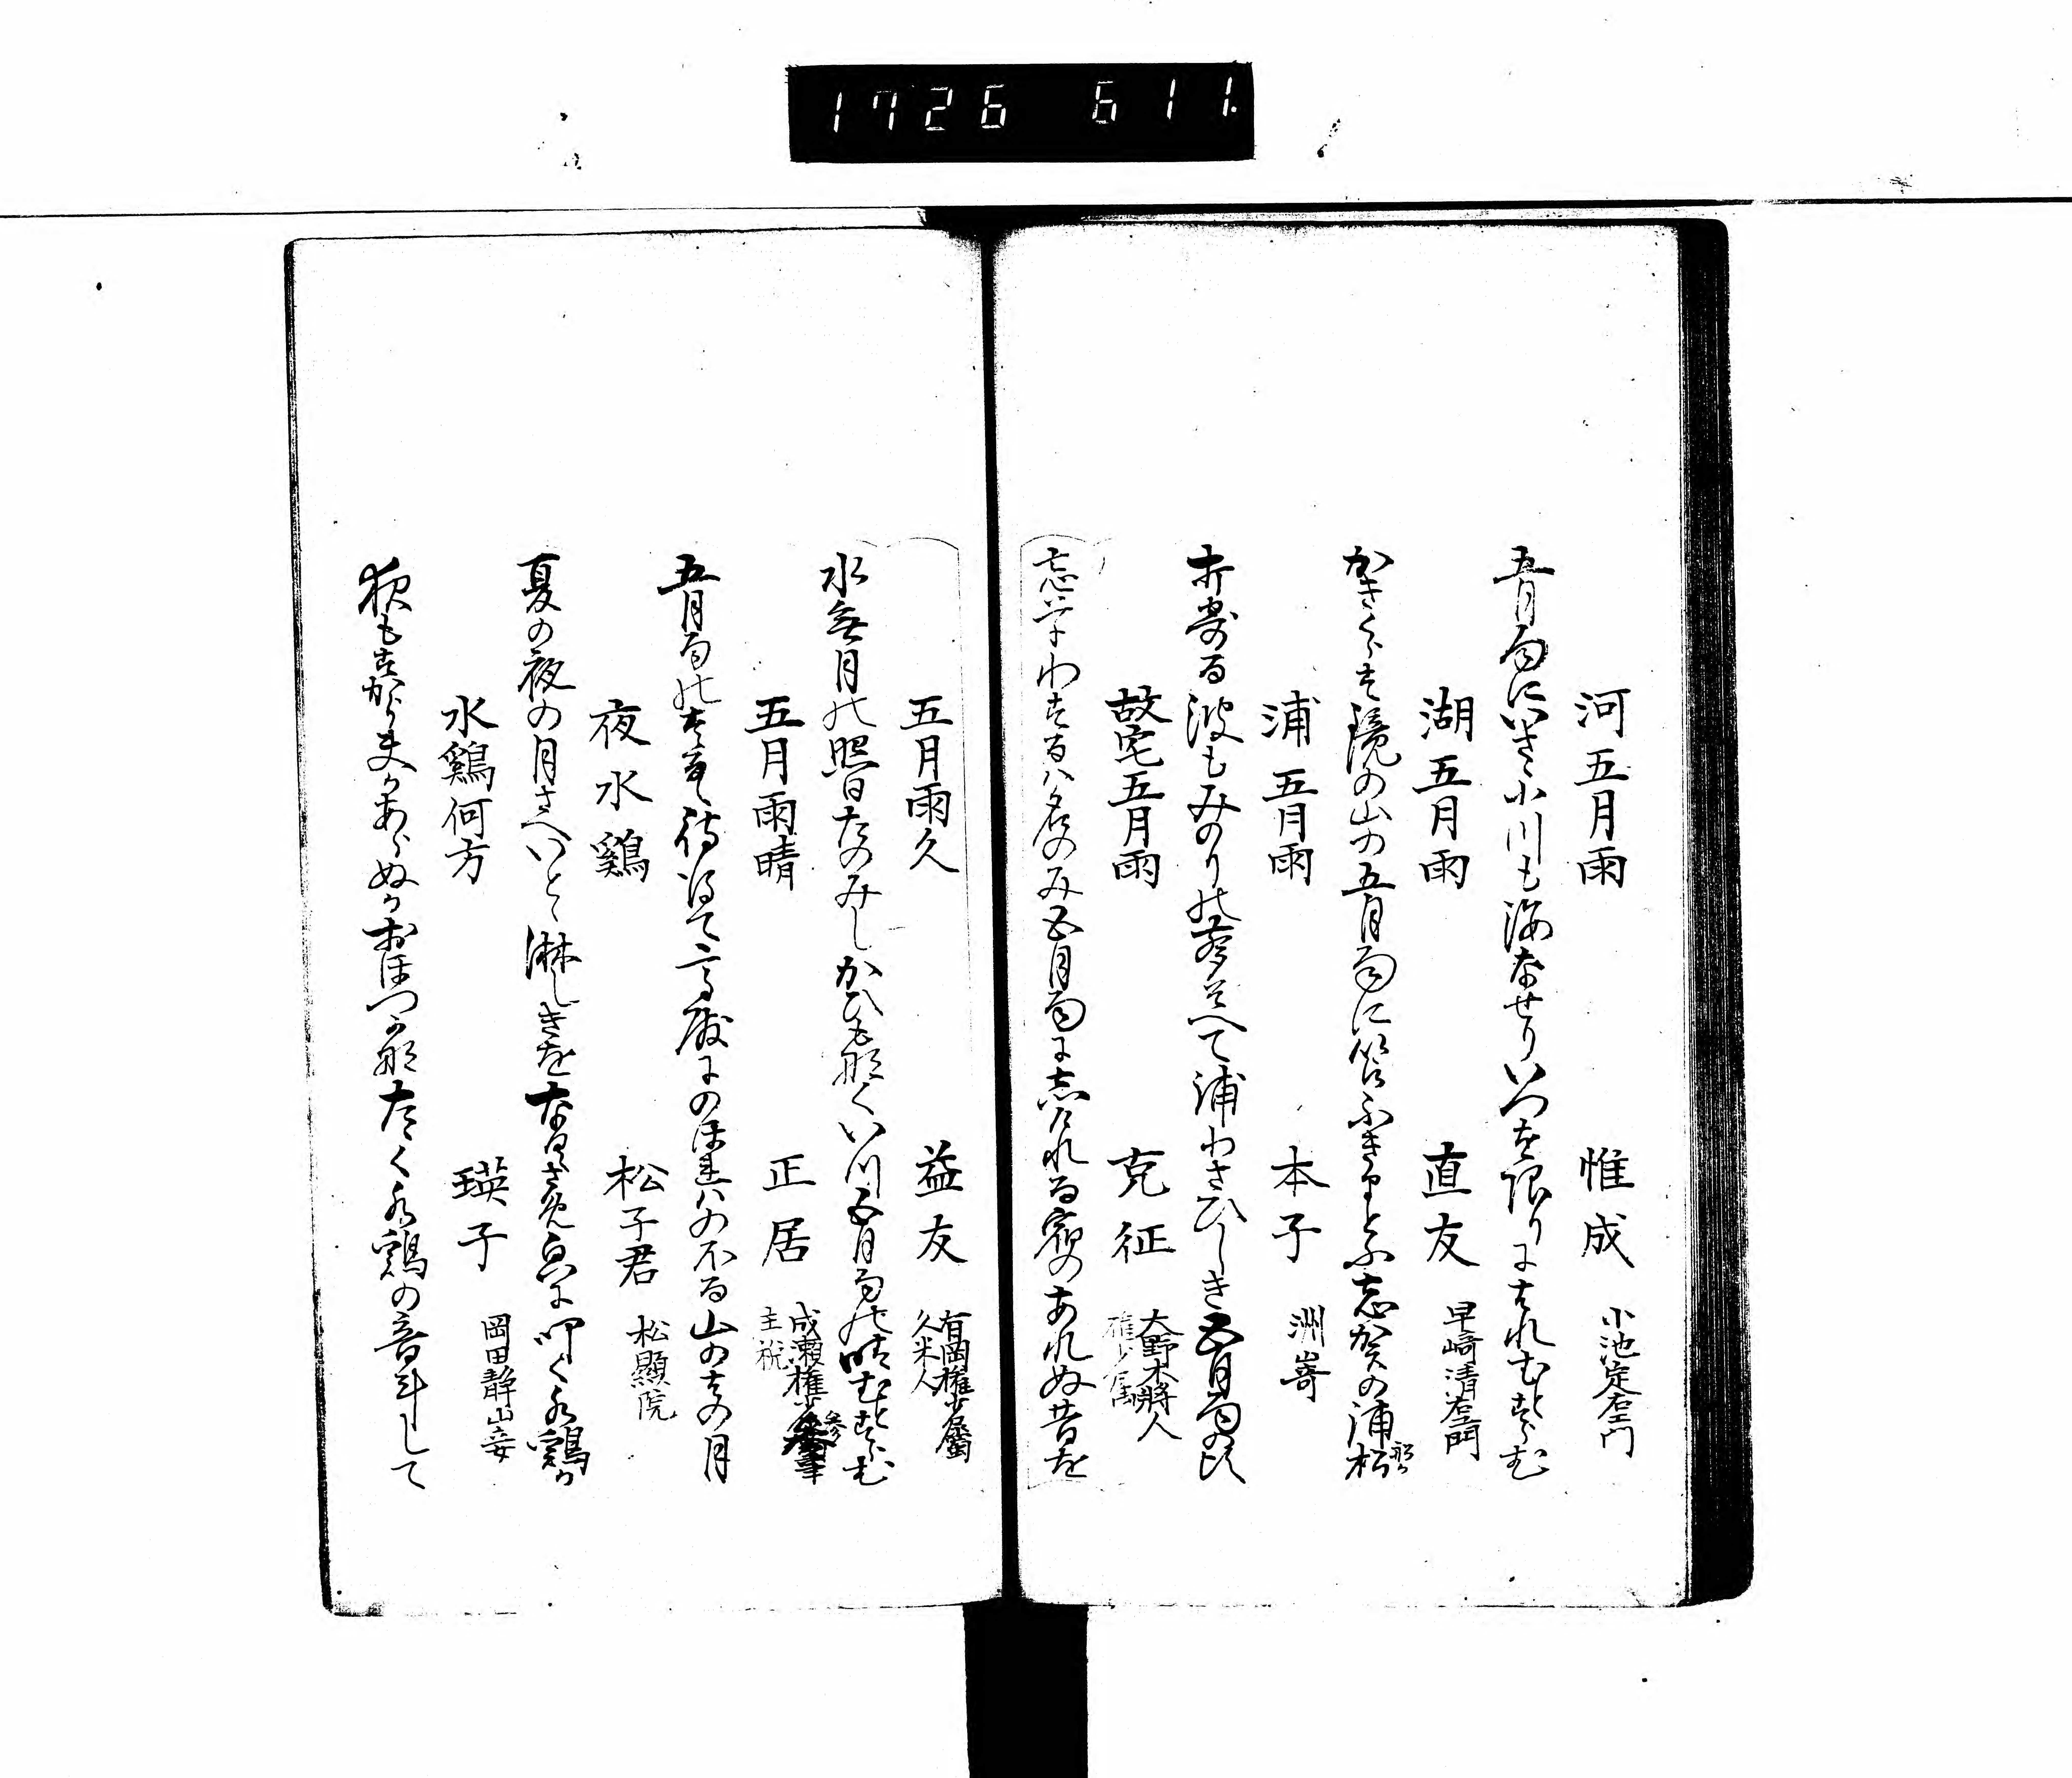 1726 611
河五月雨
惟成 小池定右エ門
五月雨にいさゝ小川も海なせりいつを限りにはれむとすらむ
湖五月雨
直友 早崎清右エ門
かきくらす鏡の山の五月雨に
志賀の浦松
浦五月雨
本子 洲嵜
折寄る波もみのりの
て浦わさひしき五月雨の比
故宅五月雨
克征 大野木將人
忘草わするは名のみ五月雨に志けれる宿のあれぬ昔を
五月雨久
益友 有岡権少属
久米人
水無月の照日たのみしかひも那くいつ五月雨の晴むとすらむ
五月雨晴
正居 成瀬権少参事
主税
五月雨の
待得て高殿にのほれはのほる山のはの月
夜水鶏
松子君 松顕院
夏の夜の月さへいとゝ淋しきを
叩く水鶏か
水鶏何方
瑛子 岡田静山妾
夜もすから夫かあらぬかおほつか那たゝく水鶏の音斗して